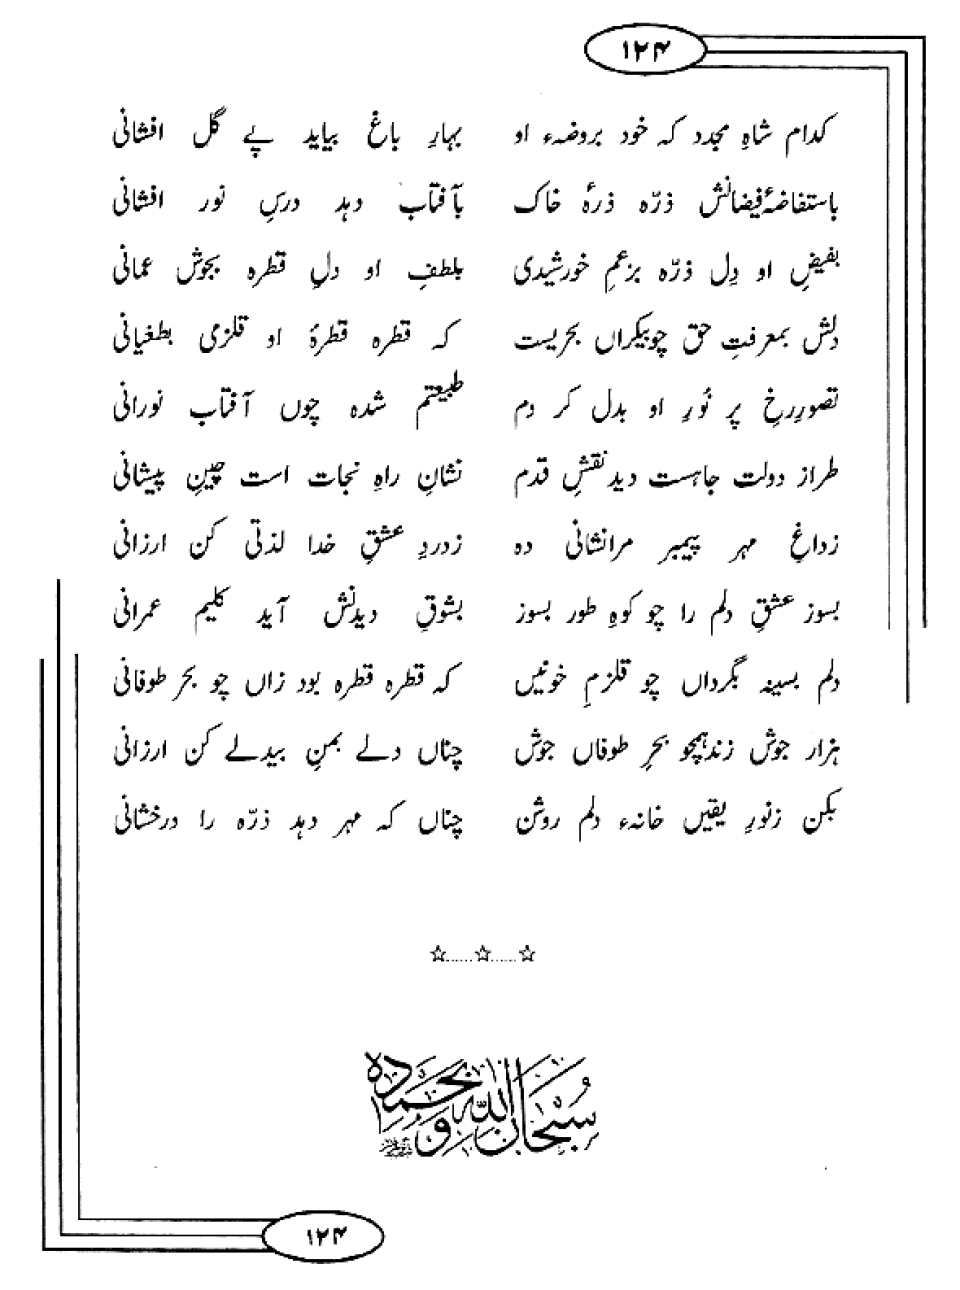 ۱۲۴
کدام شاہِ مجدد کہ خود بروضہء او بہارِ باغ بیاید پے گل افشانی
باستفاضۂ فیضانش ذرّہ ذرۂ خاک بآفتاب دہد درسِ نور افشانی
بفیضِ او دِل ذرّہ بزعمِ خورشیدی بلطفِ او دلِ قطرہ بجوش عمانی
دلش بمعرفتِ حق چو بیکراں بحریست کہ قطرہ قطرۂ او قلزمی بطغیانی
تصورِ رخِ پر نُورِ او بدل کر دم طبیعتم شدہ چوں آفتاب نورانی
طراز دولت جاہست دید نقشِ قدم نشانِ راہِ نجات است چینِ پیشانی
زداغِ مہر پیمبر مرانشانی دہ زدردِ عشقِ خدا لذتی کن ارزانی
بسوز عشقِ دلم را چو کوہِ طور بسوز بشوقِ دیدنش آید کلیم عمرانی
دلم بسینہ بگرداں چو قلزمِ خونیں کہ قطرہ قطرہ بود زاں چو بحر طوفانی
ہزار جوش زند ہمچو بحرِ طوفاں جوش چناں دلے بمنِ بیدلے کن ارزانی
بکن زنورِ یقیں خانہء دلم روشن چناں کہ مہر دہد ذرّہ را درخشانی
☆......☆......☆
سُبْحَانَ اللّٰهِ وَ بِحَمْدِهٖ
۱۲۴